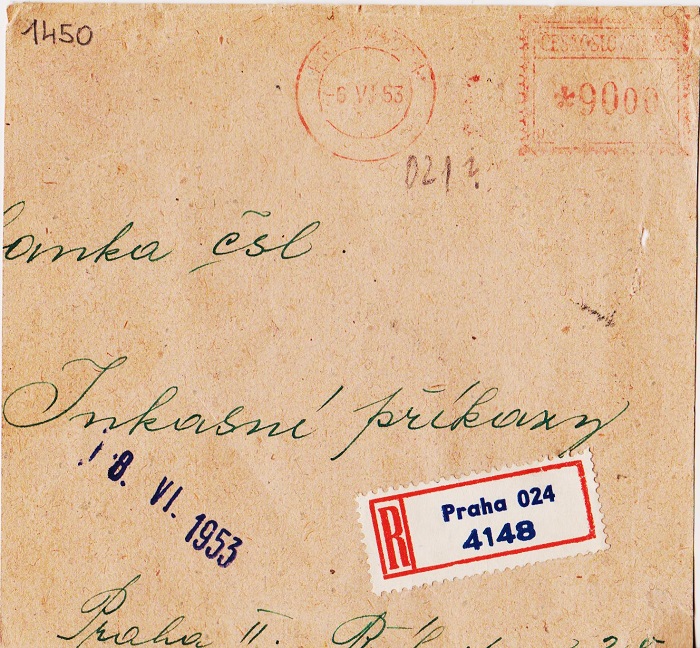 1450
-6 VI 53
ČESKOSLOVENSKO
*9000
021
čsl.
Inkasné příkazy
8. VI. 1953
R
Praha 024
4148
Praha II.